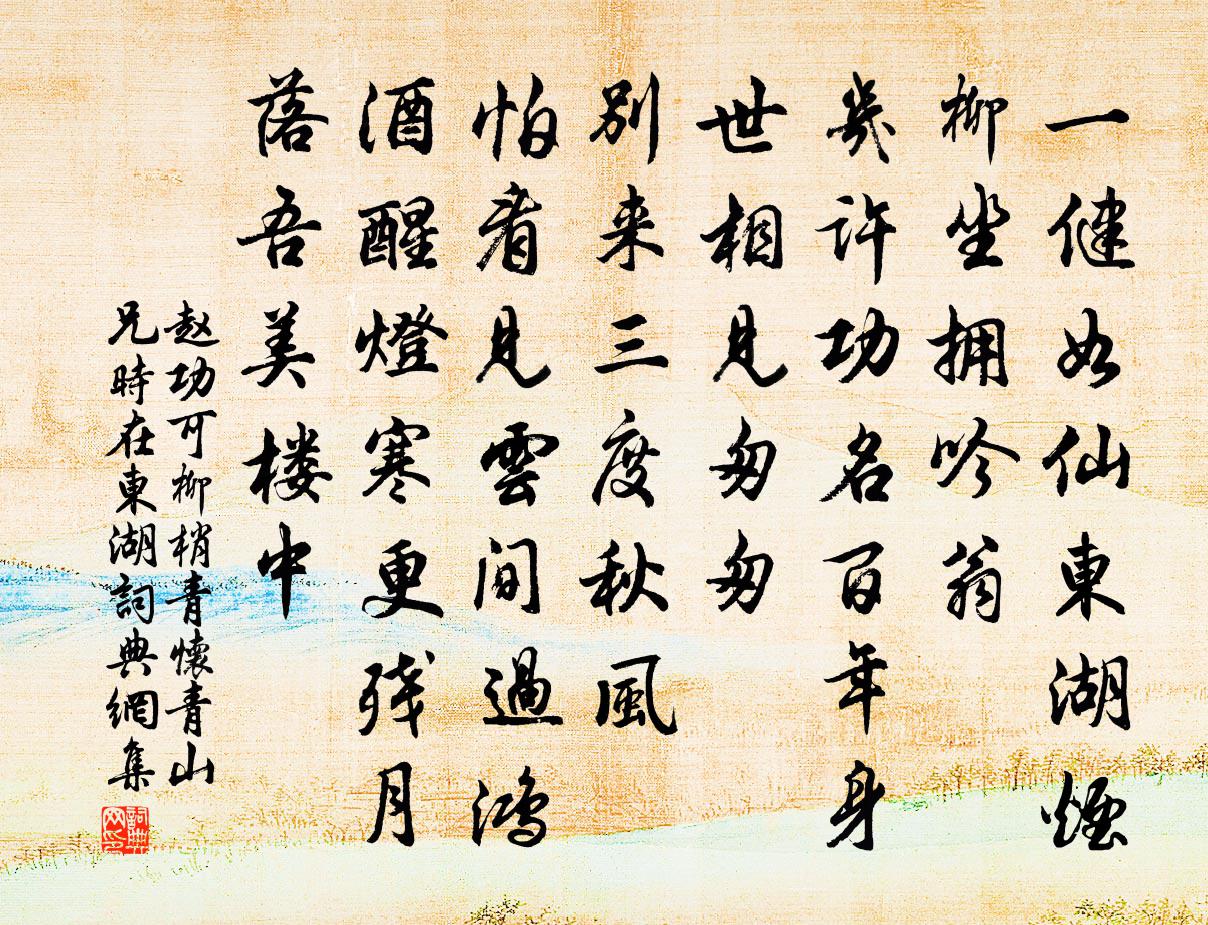 一健如仙東湖煙
柳坐拥吟翁
幾許功名百年身
世相見匆匆
別来三度秋風
怕看見雲間過鴻
酒醒燈寒更残月
落吾美楼中
赵功可柳梢青懷青山
兄時在東湖詞典網集
詞典
网印